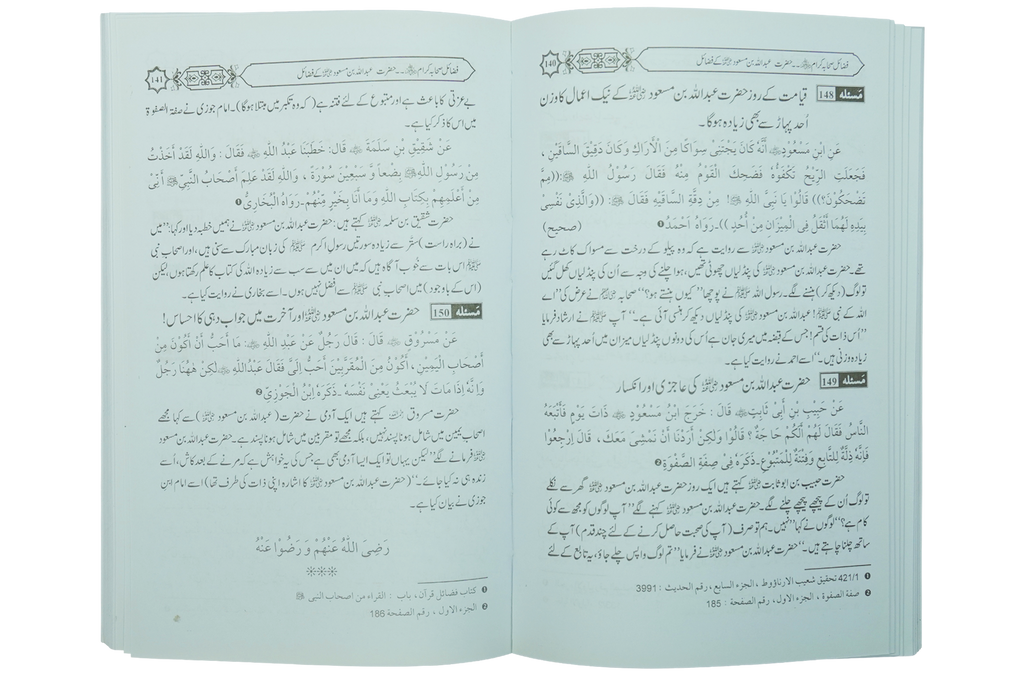 140
فضائل صحابہ کرام ﷢...حضرت عبداللہ بن مسعود ﷜ کے فضائل
مسئلہ 148 قیامت کے روز حضرت عبداللہ بن مسعود ﷜ کے نیک اعمال کا وزن
اُحد پہاڑ سے بھی زیادہ ہوگا۔
عَنِ ابْنِ مَسْعُوْدٍ ﷜ أَنَّهُ كَانَ يَجْتَنِيْ سِوَاكًا مِنَ الْأَرَاكِ وَكَانَ دَقِيْقَ السَّاقَيْنِ ،
فَجَعَلَتِ الرِّيْحُ تَكْفَؤُهُ فَضَحِكَ الْقَوْمُ مِنْهُ فَقَالَ رَسُوْلُ اللهِ ﷺ :((مِمَّ
تَضْحَكُوْنَ؟)) قَالُوْا يَا نَبِيَّ اللهِ ﷺ! مِنْ دِقَّةِ السَّاقَيْهِ فَقَالَ ﷺ: ((وَالَّذِيْ نَفْسِيْ
بِيَدِهِ لَهُمَا أَثْقَلُ فِي الْمِيْزَانِ مِنْ أُحُدٍ ))۔رَوَاهُ اَحْمَدُ❶ (صحیح)
حضرت عبداللہ بن مسعود ﷜ سے روایت ہے کہ وہ پیلو کے درخت سے مسواک کاٹ رہے
تھے۔حضرت عبداللہ بن مسعود ﷜ کی پنڈلیاں چھوٹی تھیں، ہوا چلنے کی وجہ سے اُن کی پنڈلیاں کھل گئیں
تو لوگ (دیکھ کر) ہنسنے لگے۔ رسول اللہ ﷺ نے پوچھا ’’کیوں ہنستے ہو؟‘‘ صحابہ ﷢ نے عرض کی ’’اے
اللہ کے نبی ﷺ! عبداللہ بن مسعود ﷜ کی پنڈلیاں دیکھ کر ہنسی آئی ہے۔‘‘ آپ ﷺ نے ارشاد فرمایا
’’اُس ذات کی قسم! جس کے قبضہ میں میری جان ہے اُس کی دونوں پنڈلیاں میزان میں اُحد پہاڑ سے بھی
زیادہ وزنی ہیں۔‘‘ اسے احمد نے روایت کیا ہے۔
مسئلہ 149 حضرت عبداللہ بن مسعود ﷜ کی عاجزی اور انکسار
عَنْ حَبِيْبِ بْنِ أَبِيْ ثَابِتٍ ﷫ قَالَ : خَرَجَ ابْنُ مَسْعُوْدٍ ﷜ ذَاتَ يَوْمٍ فَأَتْبَعَهُ
النَّاسُ فَقَالَ لَهُمْ أَلَكُمْ حَاجَةٌ ؟ قَالُوْا وَلٰكِنْ أَرَدْنَا أَنْ نَمْشِيَ مَعَكَ، قَالَ إِرْجِعُوْا
فَإِنَّهُ ذِلَّةٌ لِلتَّابِعِ وَفِتْنَةٌ لِلْمَتْبُوْعِ۔ذَكَرَهُ فِيْ صِفَةِ الصَّفْوَةِ❷
حضرت حبیب بن ابو ثابت ﷫ کہتے ہیں ایک روز حضرت عبداللہ بن مسعود ﷜ گھر سے نکلے
تو لوگ اُن کے پیچھے پیچھے چلنے لگے۔حضرت عبداللہ بن مسعود ﷜ کہنے لگے ’’آپ لوگوں کو مجھ سے کوئی
کام ہے؟‘‘ لوگوں نے کہا ’’نہیں۔ہم تو صرف (آپ کی صحبت حاصل کرنے کے لئے چند قدم) آپ کے
ساتھ چلنا چاہتے ہیں۔‘‘ حضرت عبداللہ بن مسعود ﷜ نے فرمایا ’’تم لوگ واپس چلے جاؤ، یہ تابع کے لئے
❶ 421/1 تحقیق شعیب الارناؤوط ، الجزء السابع ، رقم الحدیث : 3991
❷ صفة الصفوة ، الجزء الاول ، رقم الصفحة : 185
141
فضائل صحابہ کرام ﷢...حضرت عبداللہ بن مسعود ﷜ کے فضائل
بے عزتی کا باعث ہے اور متبوع کے لئے فتنہ ہے (کہ وہ تکبر میں مبتلا ہوگا)۔امام جوزی نے صفة الصفوة
میں اس کا ذکر کیا ہے۔
عَنْ شَقِيْقِ بْنِ سَلَمَةَ ﷫ قَالَ: خَطَبَنَا عَبْدُ اللهِ ﷜ فَقَالَ : وَاللهِ لَقَدْ أَخَذْتُ
مِنْ رَسُوْلِ اللهِ ﷺ بِضْعًا وَّ سَبْعِيْنَ سُوْرَةً ، وَاللهِ لَقَدْ عَلِمَ أَصْحَابُ النَّبِيِّ ﷺ أَنِّيْ
مِنْ أَعْلَمِهِمْ بِكِتَابِ اللهِ وَمَا أَنَا بِخَيْرٍ مِّنْهُمْ۔رَوَاهُ الْبُخَارِيُّ❶
حضرت شقیق بن سلمہ ﷫ کہتے ہیں : حضرت عبداللہ بن مسعود ﷜ نے ہمیں خطبہ دیا اور کہا ’’میں
نے (براہ راست) ستر سے زیادہ سورتیں رسول اکرم ﷺ کی زبان مبارک سے سنی ہیں، اور اصحاب نبی
ﷺ اس بات سے خوب آگاہ ہیں کہ میں ان میں سب سے زیادہ اللہ کی کتاب کا علم رکھتا ہوں،لیکن
(اس کے باوجود) میں اصحاب نبی ﷺ سے افضل نہیں ہوں۔ اسے بخاری نے روایت کیا ہے۔
مسئلہ 150 حضرت عبداللہ بن مسعود ﷜ اور آخرت میں جواب دہی کا احساس!
عَنْ مَسْرُوْقٍ ﷫ قَالَ : قَالَ رَجُلٌ عَنْ عَبْدِ اللهِ ﷜: مَا أُحِبُّ أَنْ أَكُوْنَ مِنْ
أَصْحَابِ الْيَمِيْنِ ، أَكُوْنُ مِنَ الْمُقَرَّبِيْنَ أَحَبُّ إِلَيَّ فَقَالَ عَبْدُاللهِ ﷜ لٰكِنْ هٰهُنَا رَجُلٌ
وَإِنَّهُ إِذَا مَاتَ لَا يُبْعَثُ يَعْنِيْ نَفْسَهُ ۔ذَكَرَهُ اِبْنُ الْجَوْزِيِّ❷
حضرت مسروق ﷫ کہتے ہیں ایک آدمی نے حضرت (عبداللہ بن مسعود ﷜) سے کہا مجھے
اصحاب یمین میں شامل ہونا پسند نہیں، بلکہ مجھے تو مقربین میں شامل ہونا پسند ہے۔حضرت عبداللہ بن مسعود
﷜ فرمانے لگے ’’لیکن یہاں تو ایک ایسا آدمی بھی ہے جس کی یہ خواہش ہے کہ مرنے کے بعد کاش، اُسے
زندہ ہی نہ کیا جائے۔‘‘ (حضرت عبداللہ بن مسعود ﷜ کا اشارہ اپنی ذات کی طرف تھا) اسے امام ابن
جوزی نے بیان کیا ہے۔
رَضِيَ اللهُ عَنْهُمْ وَ رَضُوْا عَنْهُ
❶ كتاب فضائل قرآن ، باب : القراء من اصحاب النبی ﷺ
❷ الجزء الاول ، رقم الصفحة 186